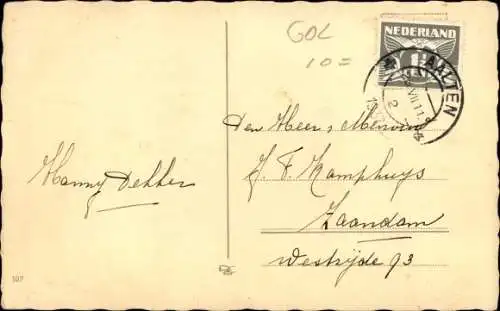 GOL
10=
NEDERLAND
AALTEN
Den Heer & Mevrouw
J. F. Kamphuys
Zaandam
Westzijde 93
Hanny Dekker
107